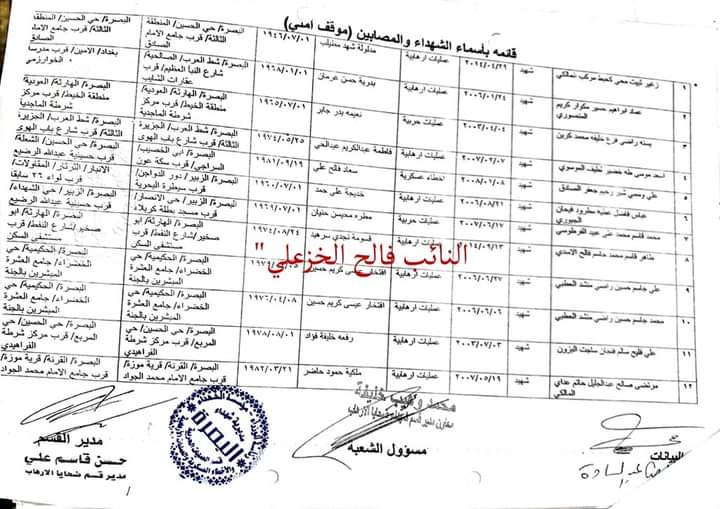 قائمه بأسماء الشهداء والمصابين (موقف امني)
١ زغير ثبيت محي كحيط مركب المالكي شهيد ٢٠١٤/٠٤/٢٩ عمليات ارهابية مدلولة شهد ١٩٤٦/٠٧/٠١ البصرة/ حي الحسين/ المنطقة الثالثة/ قرب جامع الامام الصادق البصرة/ حي الحسين/ المنطقة الثالثة/ قرب جامع الامام الصادق
٢ عماد ابراهيم حسير مكوار كريم المنصوري شهيد ٢٠٠٦/٠١/٢٤ عمليات ارهابية بدرية حسن عرمان ١٩٦٨/٠١/٠١ البصرة/ شط العرب/ الصالحية/ شارع النبا العظيم/ قرب عقارات الشايب بغداد/ الامين/ قرب مدرسة الخوارزمي
٣ بسنه راضي فرج خليفه محمد كرين شهيد ٢٠٠٣/٠٤/٠٤ عمليات حربية نعيمه بدر جابر ١٩٦٥/٠٧/٠١ البصرة/ الهارثة/ العودية/ منطقة الخيط/ قرب مركز شرطة الماجدية البصرة/ الهارثة/ العودية/ منطقة الخيط/ قرب مركز شرطة الماجدية
٤ اسعد موسى طه خضير نظيف الموسوي شهيد ٢٠٠٧/٠٧/٠٢ عمليات ارهابية فاطمة عبدالكريم عبدالحي ١٩٧٤/٠٥/٢٥ البصرة/ شط العرب/ الجزيرة الثالثة/ قرب شارع باب الهوى البصرة/ شط العرب/ الجزيرة الثالثة/ قرب شارع باب الهوى
٥ علي وسمي شبر رحيم جعفر الصادق شهيد ٢٠٠٨/٠١/٠٨ اخطاء عسكرية سعاد فالح علي ١٩٨١/٠٩/١٩ البصرة/ ابي الخصيب/ السراجي/ قرب سكة عون البصرة/ حي الحسين/ الشعلة/ قرب حسينية عبدالله الرضيع
٦ عباس فاضل عمليه سطرود فيحان الجبوري شهيد ٢٠٠٧/٠٦/١٧ عمليات ارهابية خديجة علي حمد ١٩٦٠/٠٧/٠١ البصرة/ الزبير/ دور الدواجن/ قرب سيطرة البحرية الانبار/ الثرثار/ المقاولات/ قرب لواء ٣٦ سابقا
٧ محمد قاسم محمد علي عبيد القرطوسي شهيد عمليات حربية مطره محيسن حنيان ١٩٦٩/٠٧/٠١ البصرة/ حي الانصار/ قرب مسجد بطلة كربلاء البصرة/ الزبير/ حي الشهداء/ قرب حسينية عبدالله الرضيع
٨ ظاهر قاسم محمد جاسم فالح الاسدي عمليات ارهابية قسومة نجدي سرهيد ١٩٧٤/٠٨/٢٤ البصرة/ الهارثة/ ابو صخير/ شارع النفط/ قرب مستشفى السكن البصرة/ الهارثة/ ابو صخير/ شارع النفط/ قرب مستشفى السكن
النائب فالح الخزعلي"
٩ علي جاسم حسين راضي منشد العطبي شهيد ٢٠٠٦/٠٦/٢٧ عمليات ارهابية افتخاري عيسى كريم حسين البصرة/ الحكيمية/ حي الخضراء/ جامع العشرة المبشرين بالجنة البصرة/ الحكيمية/ حي الخضراء/ جامع العشرة المبشرين بالجنة
١٠ محمد جاسم حسين راضي منشد العطبي شهيد ٢٠٠٦/٠٦/٠٦ عمليات ارهابية افتخار عيسى كريم حسين ١٩٧٦/٠٤/٠٨ البصرة/ الحكيمية/ حي الخضراء/ جامع العشرة المبشرين بالجنة البصرة/ الحكيمية/ حي الخضراء/ جامع العشرة المبشرين بالجنة
١١ علي فليح سالم فنجان ساجت البزون شهيد ٢٠٠٣/٠٧/٠٣ عمليات ارهابية رفعه خليفة فؤاد ١٩٧٨/٠٨/٠١ البصرة/ حي الحسين/ حي المربع/ قرب مركز شرطة الفراهيدي البصرة/ حي الحسين/ حي المربع/ قرب مركز شرطة الفراهيدي
١٢ مرتضى صالح عبدالجليل حاتم عداي المالكي شهيد ٢٠٠٧/٠٥/١٩ عمليات ارهابية ملكية حمود حاضر ١٩٨٢/٠٣/٢١ البصرة/ القرنة/ قرية موزة/ قرب جامع الامام محمد الجواد البصرة/ القرنة/ قرية موزة/ قرب جامع الامام محمد الجواد
البيانات
مسؤول الشعبه
مدير القسم
حسن قاسم علي
مدير قسم ضحايا الارهاب
البصرة